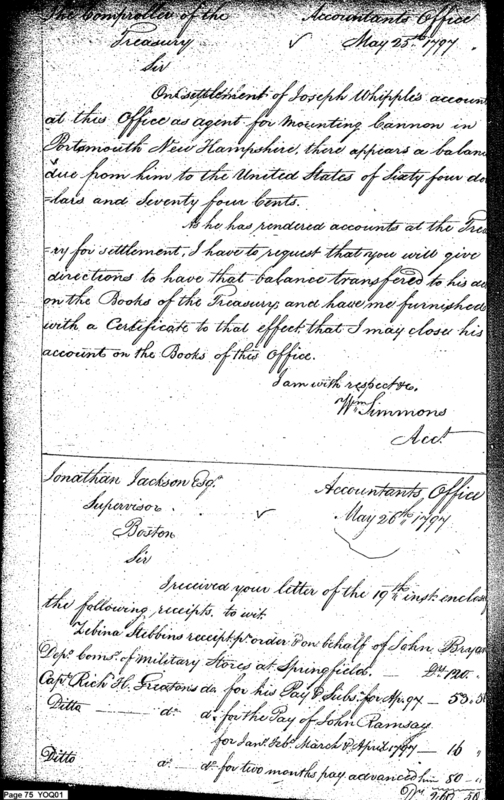 The Comptroller of the Accountants Office
Treasury May 25th 1797
Sir
On settlement of Joseph Whipple's accoun
at this Office as agent for mounting Cannon in
Portsmouth New Hampshire, there appears a balan
due from him to the United States of Sixty four dol
=lars and Seventy four Cents.
As he has rendered accounts at the Trea
=ry for settlement, I have to request that you will give
directions to have that balance transfered to his
on the Books of the Treasury, and have me furnished
with a Certificate to that effect that I may close his
account on the Books of this Office.
I am with respect &c.
Wm Simmons
Acct
Jonathan Jackson Esqr Accountants Office
Supervisor May 26th 1797
Boston
Sir
I received your letter of the 19th inst. enclos
the following receipts, to wit
Zebina Stebbins receipt pr order & on behalf of John Bryan
Depy Comsy of Military Stores at Springfield. Drs 120.
Capt Rich H. Greatons do for his Pay & Subs. for Apr. 97 — 53.50
Ditto do do for the Pay of John Ramsay
for Jany Feby March & April 1797 — 16 "
Ditto do do for two months pay advanced him 80 — "
260.50
Page 75 YOQ01